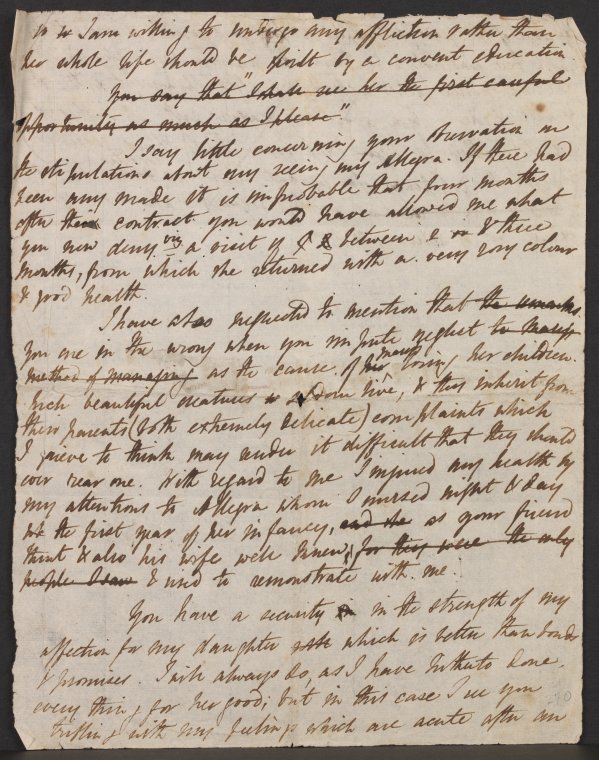 so I am willing to undergo any affliction rather than
her whole life should be spoilt by a convent education
You say that "I shall see her the first careful
opportunity as much as I please"
I say little concerning your observation on
the stipulations about my seeing my Allegra. If there had
been any made it is improbable that four months
after contract you would have allowed me what
you now deny viz a visit of between 2 & three
months, from which she returned with a very rosy colour
& good health.
I have also neglected to mention that
you are in the wrong when you impute neglect
method of managing as the cause of losing her children.
Such beautiful creatures seldom live, & they inherit from
their parents (both extremely delicate) complaints which
I grieve to think may render it difficult that they should
ever rear one. With regard to me I injured my health by
my attentions to Allegra whom I nursed night & day
the first year of her infancy, and she as your friend
& also his wife well knew, for they were the only
people I saw & used to remonstrate with me.
You have a security in the strength of my
affection for my daughter which is better than bonds
& promises. I will always do, as I have hitherto done,
every thing for her good; but in this case I see you
trifling with my feelings which are acute after an